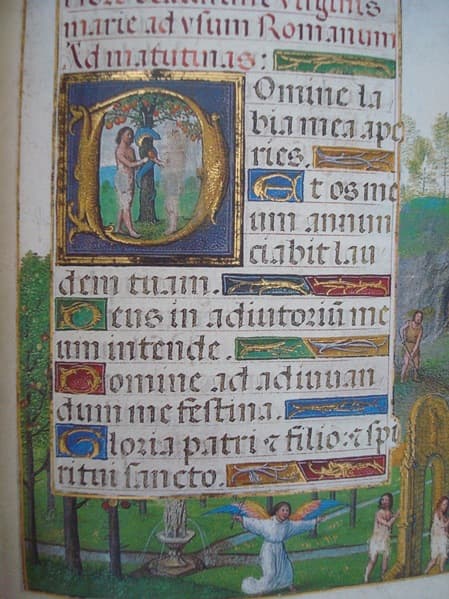 marie ad vsum Romanum
Ad matutinas:
Domine la
bia mea ape
ries.
Et os me
um annun
ciabit lau
dem tuam.
Deus in adiutoriū me
um intende.
Domine ad adiuuan
dum me festina.
Gloria patri ⁊ filio: ⁊ spi
ritui sancto.